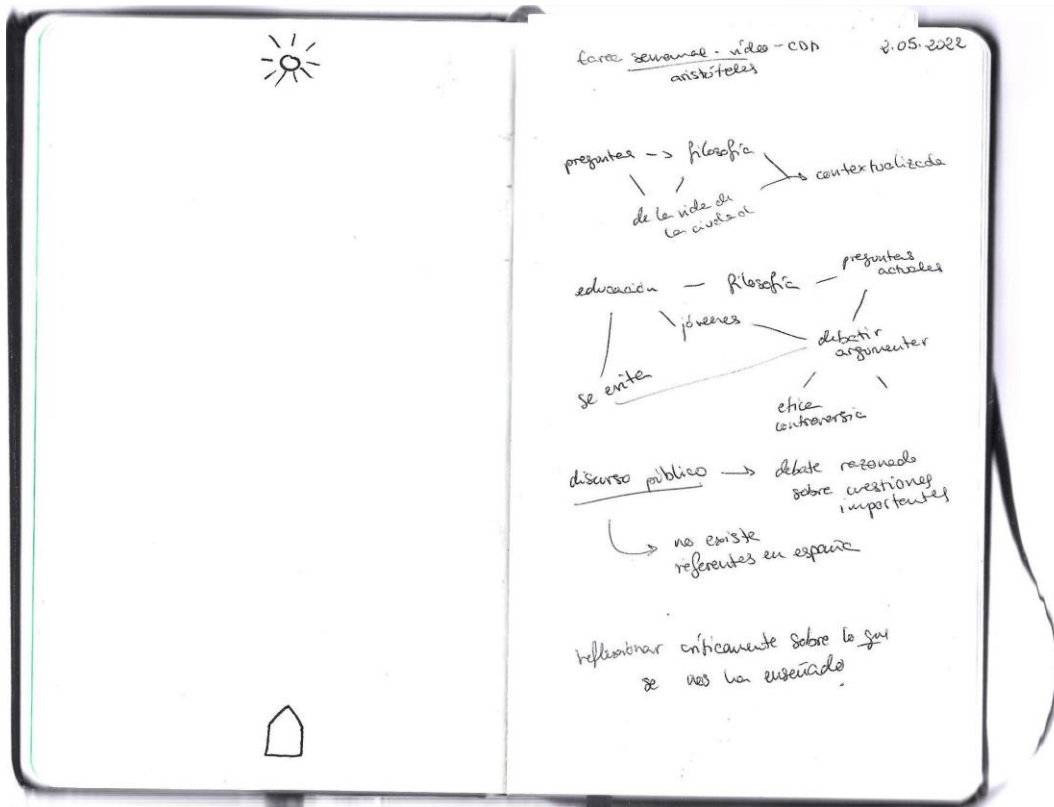 tarea semanal - vídeo - CDA
2.05.2022
aristóteles
preguntas → filosofía
contextualizada
de la vida de
la ciudad
educación — filosofía — preguntas
actuales
jóvenes
debatir
argumentar
se evita
etica
controversia
discurso público → debate razonado
sobre cuestiones
importantes
no existe
referentes en españa
reflexionar críticamente sobre lo que
se nos ha enseñado.